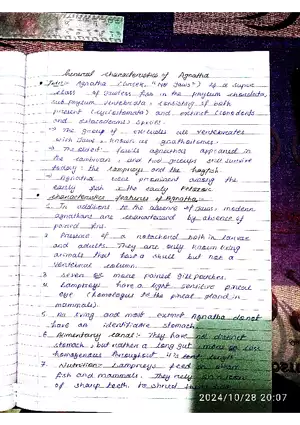 General characteristics of Agnatha
Intro:- Agnatha (Greek, "No jaws") is a super
class of jawless fish in the phylum chordata,
subphylum vertebrata, consisting of both
present (cyclostomata) and extinct (conodonts
and ostracoderms) species.
→ The group excludes all vertebrates
with jaws, known as gnathostomes.
→ The oldest fossils agnathas appeared in
the cambrian, and two groups still survive
today: the lampreys and the hagfish.
→ Agnatha were prominent among the
early fish
characteristics features of Agnatha:-
1. In additions to the absence of jaws, modern
agnathans are characterised by absence of
paired fins.
Presence of a notochord both in larvae
and adults. They are only known living
animals that have a skull but not a
vertebral column.
3. seven or more paired gill pouches.
4. Lampreys have a light sensitive pineal
eye (homologus to the pineal gland in
mammals).
5. No living and most extinct Agnatha do not
have an identifiable stomach.
6. Alimentary canal:- They have no distinct
stomach, but rather a long gut, more or less
homogenous throughout it's length.
7. Nutrition:- Lampreys feed on other
fish and mammals. They rely on a row
of sharp teeth to shred their
2024/10/28 20:07